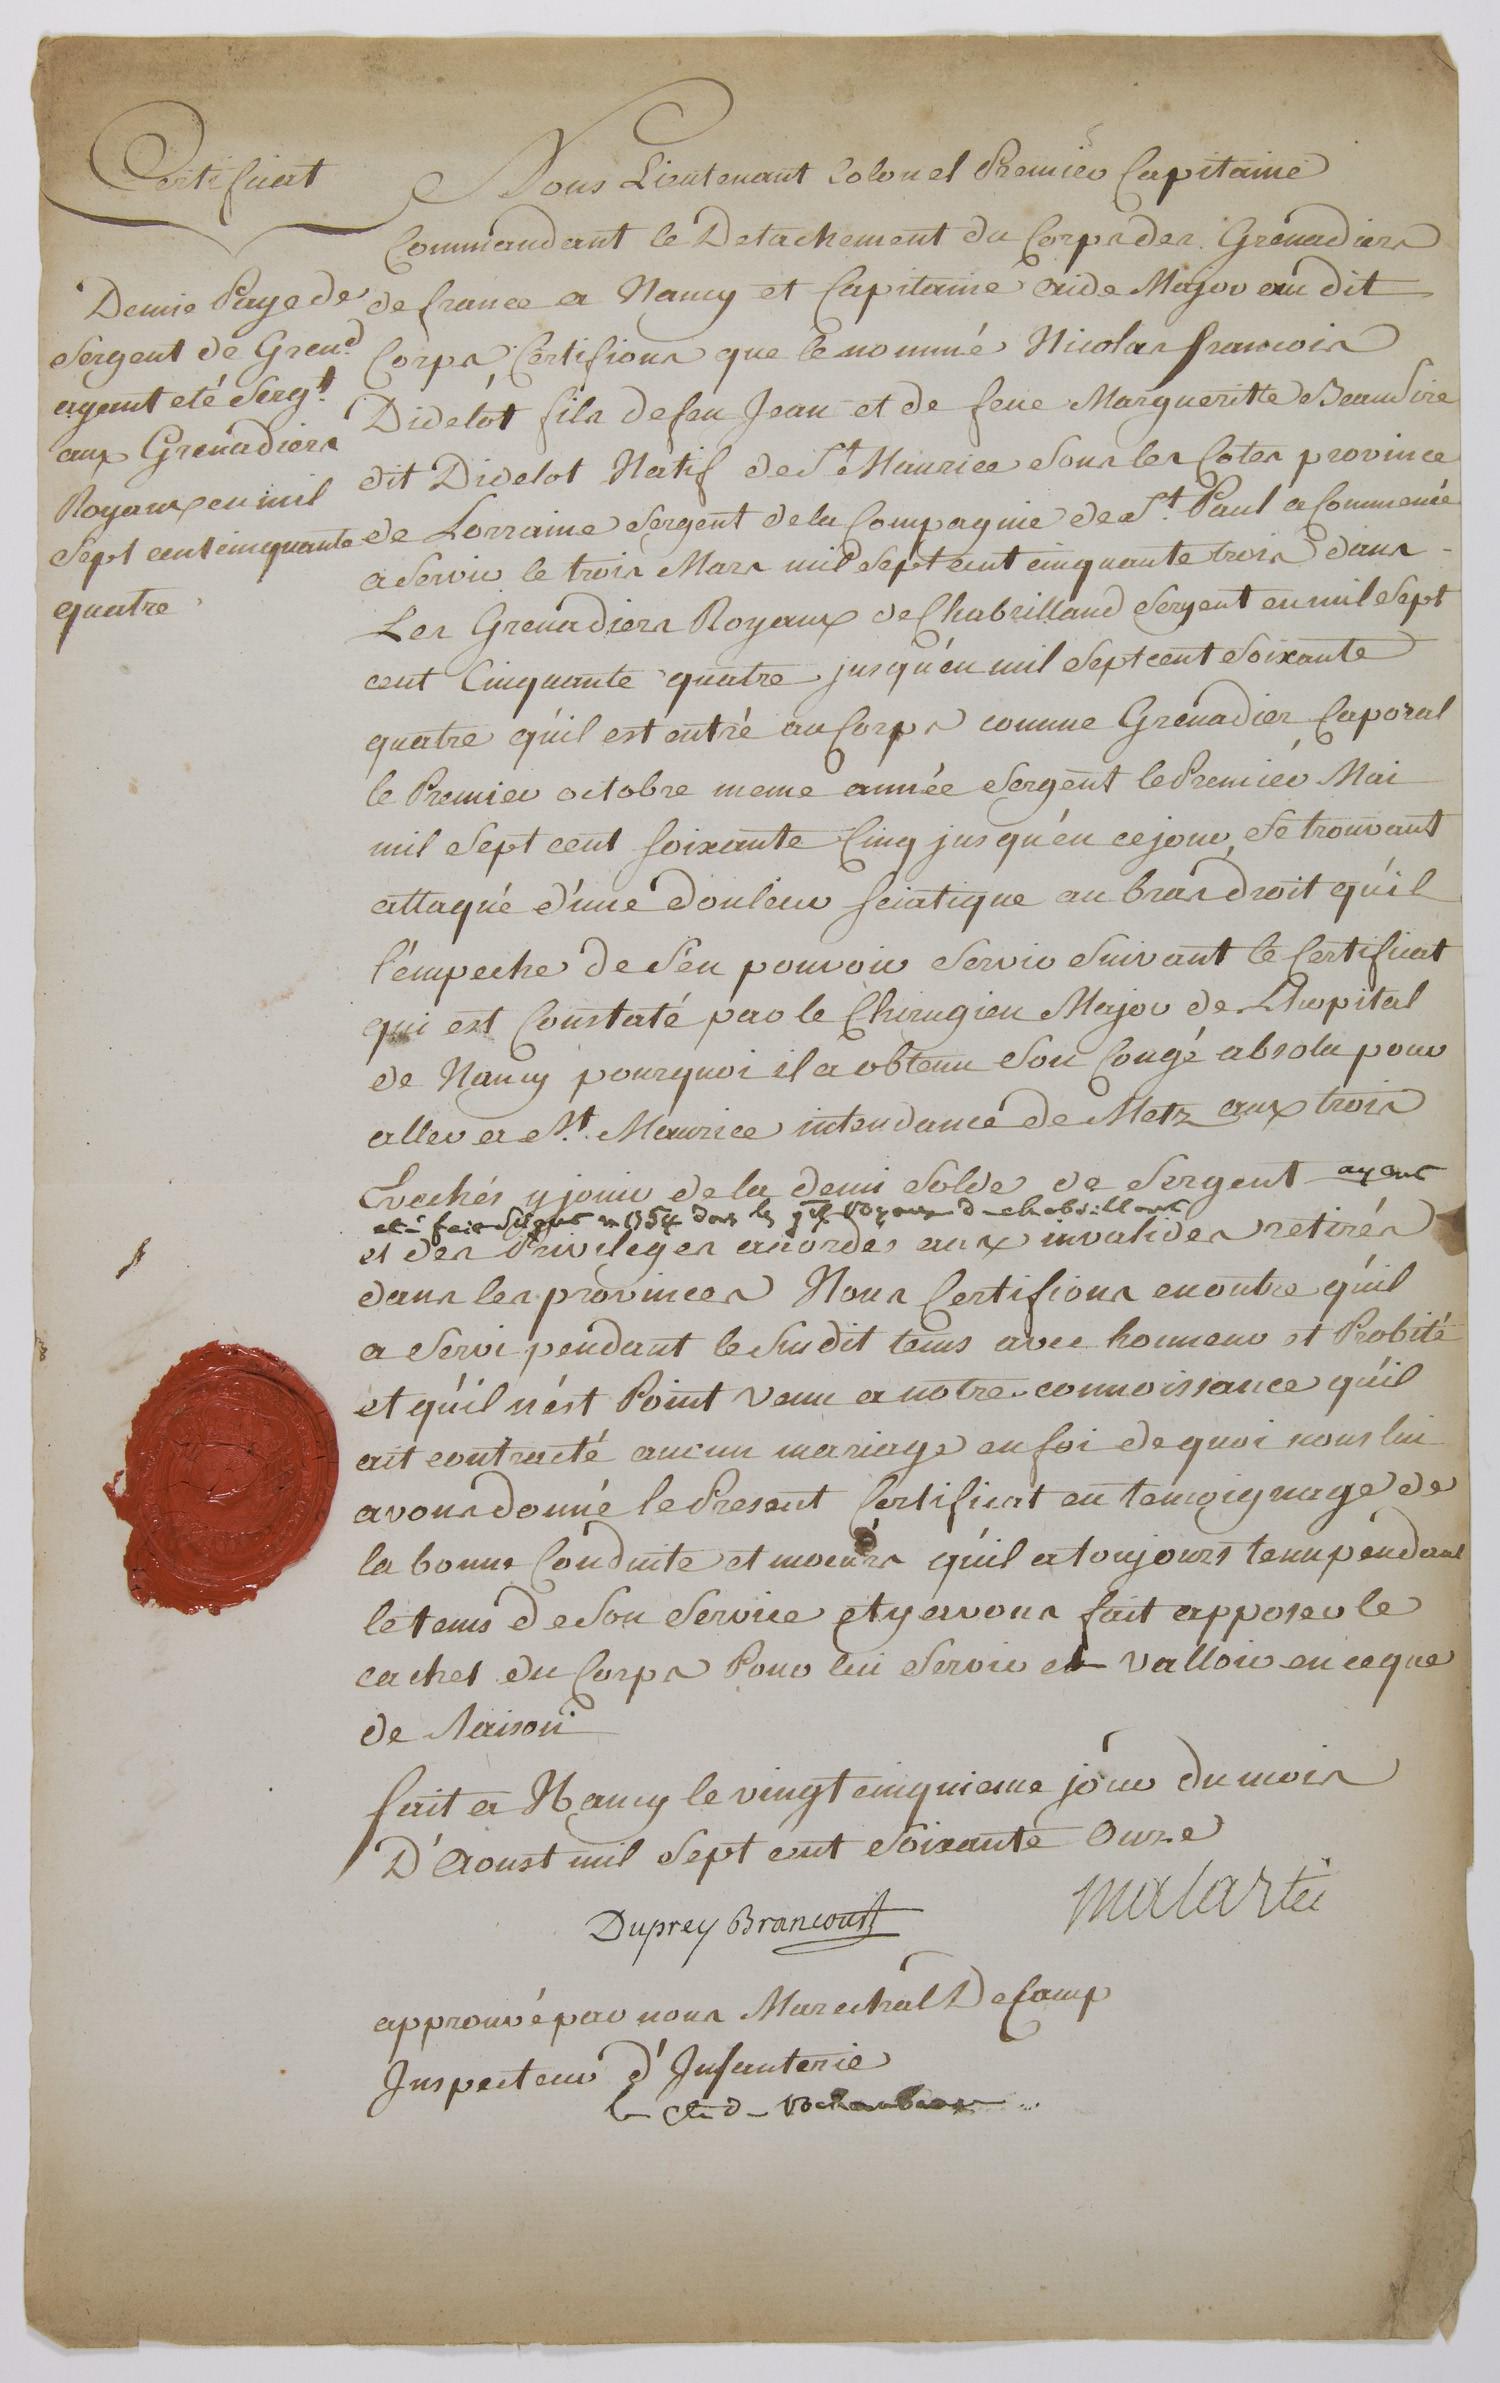 Certificat
Demie Paye de
Sergent de Gren.d
ayant eté Serg.t
aux Grenadiers
Royaux en mil
Sept cent cinquante
quatre
Nous Lieutenant Colonel Premier Capitaine
Commandant le Detachement du Corps des Grenadiers
de france a Nancy et Capitaine aide Major au dit
Corps, Certifions que le nommé Nicolas françois
Didelot fils de feu Jean et de feue Margueritte Beausire
dit Didelot Natif de St. Maurice Sous les Cotes province
de Lorraine Sergent de la Compagnie de St. Paul a Commencé
a Servir le trois Mars mil Sept cent cinquante trois dans
Les Grenadiers Royaux de Chabrilland Sergent en mil Sept
cent Cinquante quatre jusqu'en mil Sept cent Soixante
quatre qu'il est entré au Corps comme Grenadier Caporal
le Premier octobre meme année Sergent le Premier Mai
mil Sept cent Soixante Cinq jusqu'en ce jour, Se trouvant
attaqué d'une Douleur Sciatique au bras droit qu'il
l'empeche de S'en pouvoir Servir Suivant le Certificat
qui est Constaté par le Chirugien Major de L'hopital
de Nancy pourquoi il a obtenu Son Congé absolu pour
aller a St. Maurice intendance de Metz aux trois
Evechés y jouir de la demi Solde de Sergent ayant
eté fait Sergent en 1754 dans les grs. Royaux de chabrillant
et des Privileges accordés aux invalides retirés
dans les provinces Nous Certifions en outre qu'il
a Servi pendant le Susdit tems avec honneur et Probité
et qu'il n'est Point venu a notre connoissance qu'il
ait contracté aucun mariage en foi de quoi nous lui
avons donné le Present Certificat en temoignage de
la bonne Conduite et moeurs qu'il a toujours tenu pendant
le tems de Son Service et y avons fait apposer le
cachet du Corps Pour lui Servir et Valloir en ce que
de Raison
fait a Nancy le vingt cinquieme jour du mois
D'Aoust mil Sept cent Soixante Onze
Duprey Brancourt
Malartic
approuvé par nous Marechal De Camp
Inspecteur d'Infanterie
le cte de Rochambeau